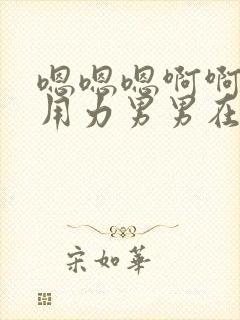 嗯嗯嗯啊啊
用力男男在
宋如华